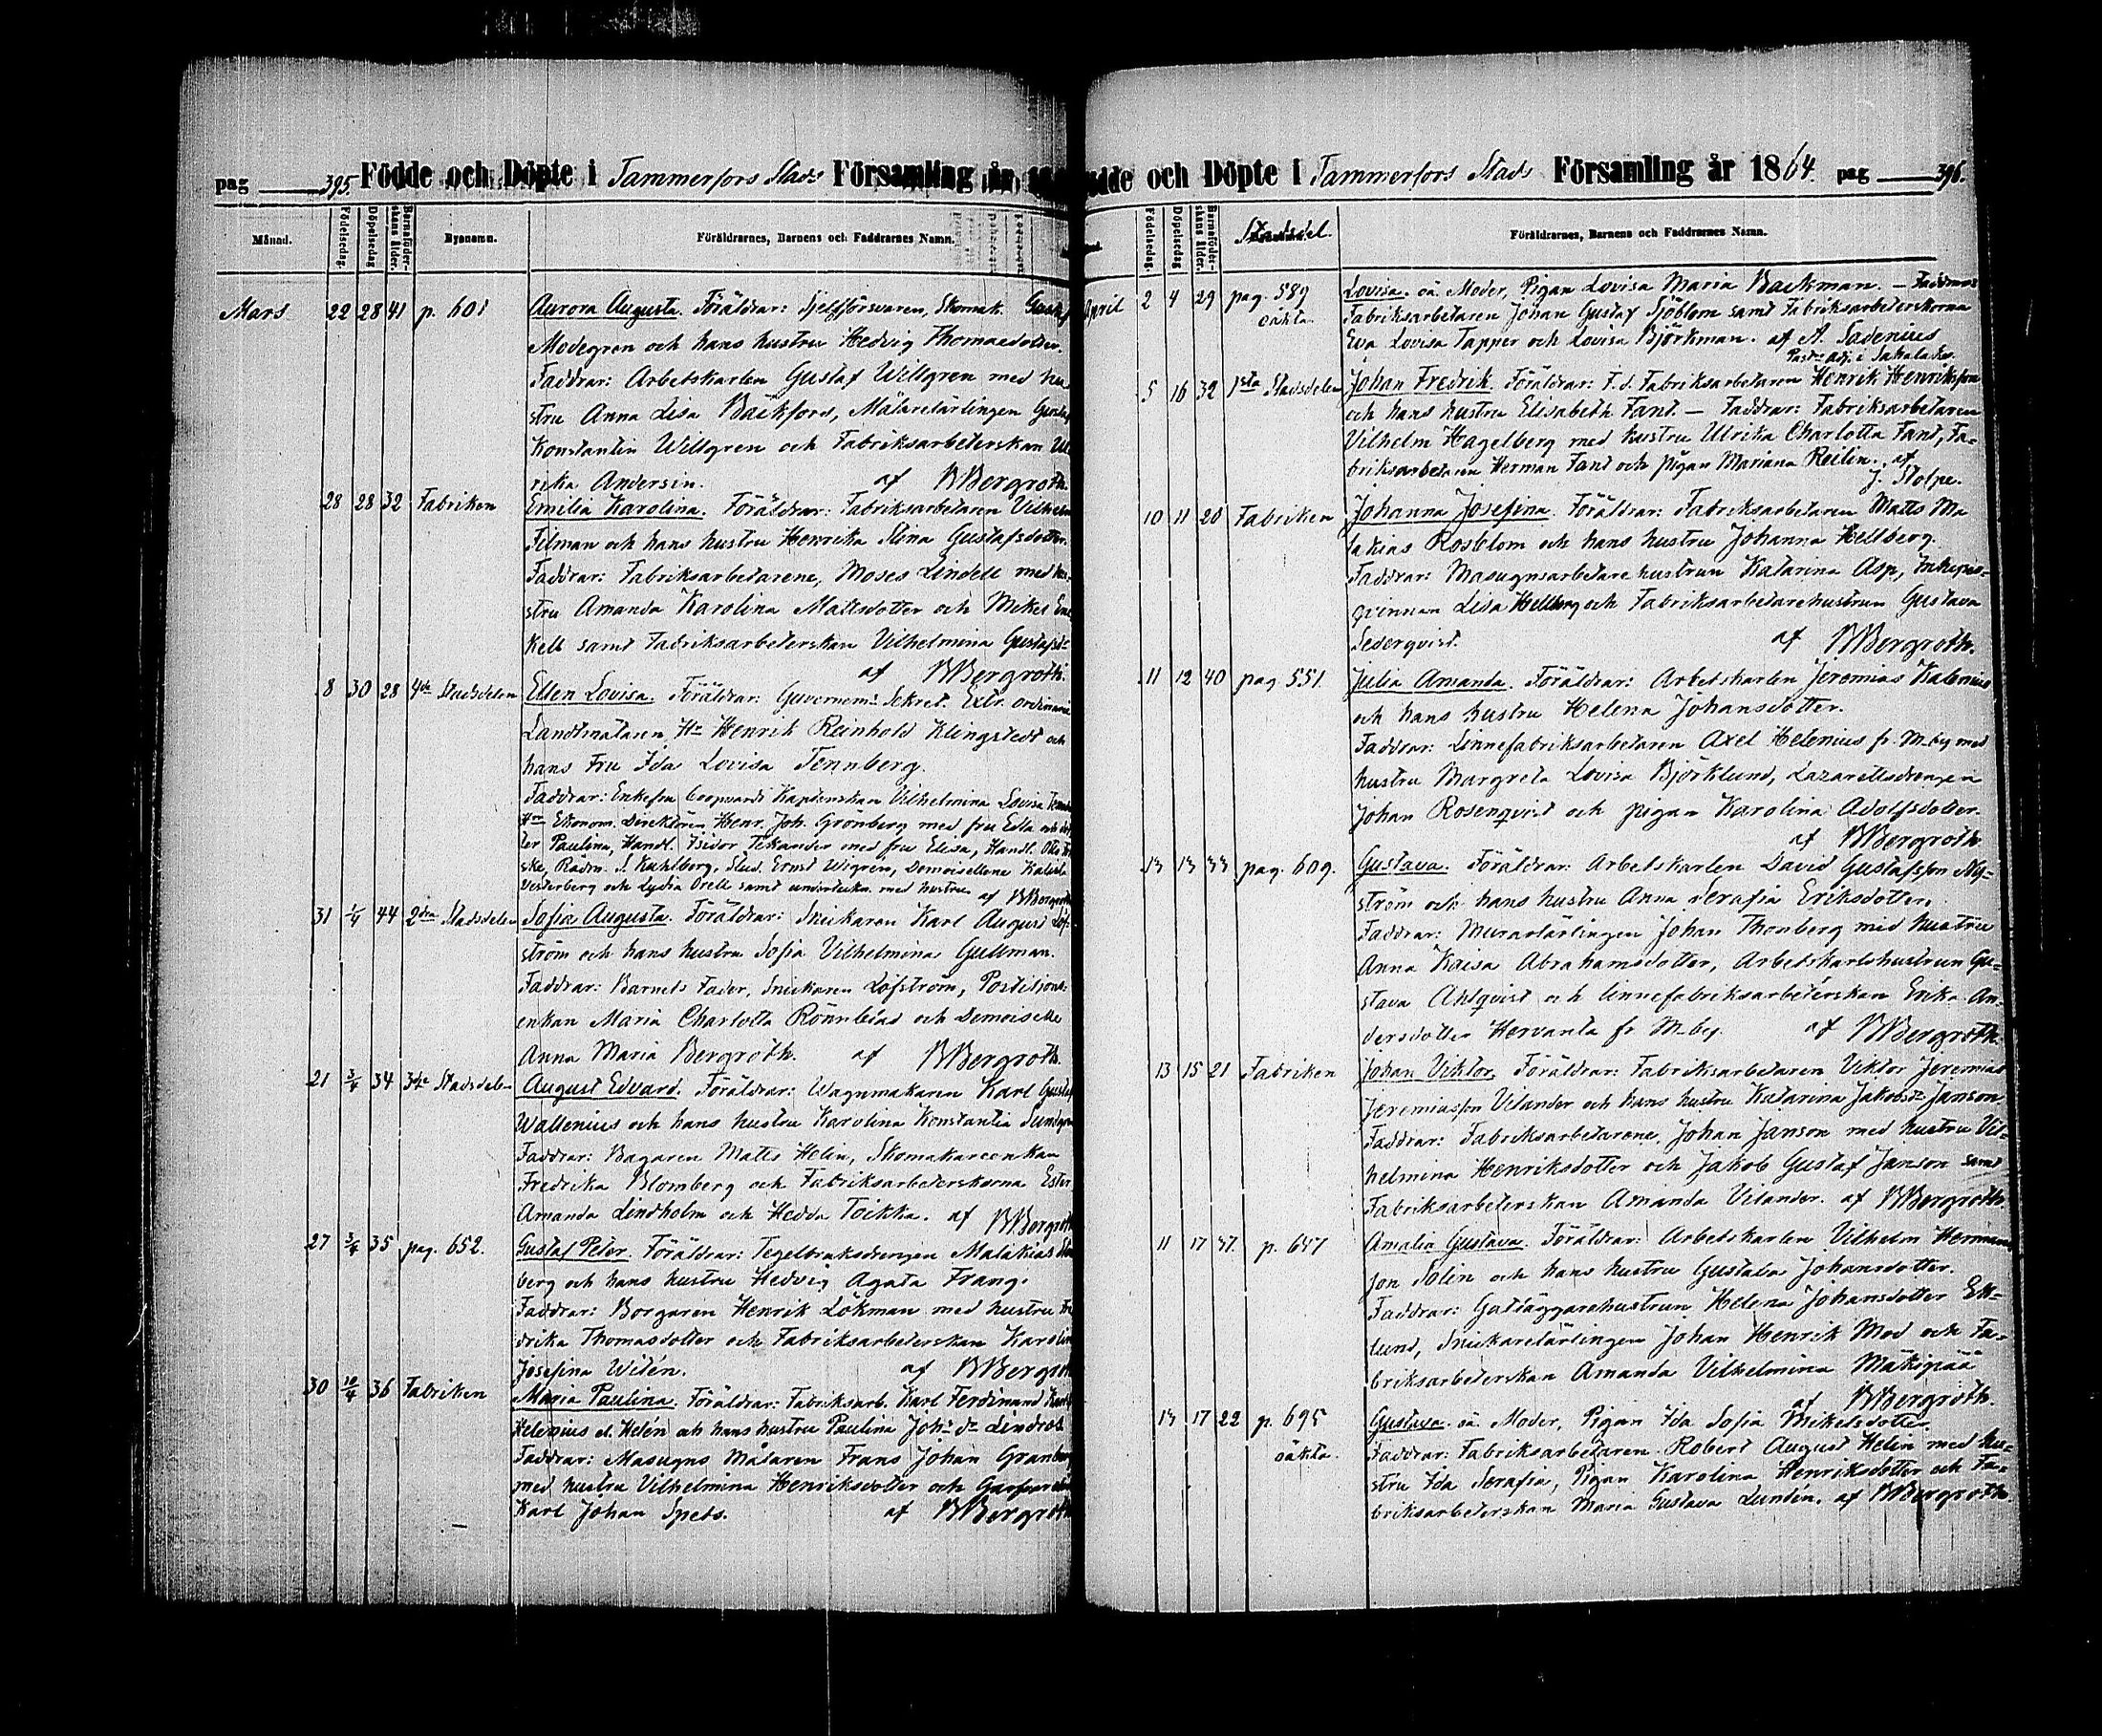 pag 395. Födde och Döpte i Tammerfors Stads Församling år
Månad. Födelsedag. Döpelsedag Barnaföder-skans ålder. Bynamn. Föräldrarnes, Barnens och Faddrarnes Namn.
Mars 22 28 41 p. 601 Aurora Augusta. Föräldrar: Sjelfförsvaren, Skomak. Gustaf
Modegren och hans hustru Hedvig Thomasdotter.
Faddrar: Arbetskarlen Gustaf Willgren med hu
stru Anna Lisa Bäckfors, Målarelärlingen Gustaf
Konstantin Willgren och Fabriksarbeterskan Ul
rika Andersin. af BBergroth.
28 28 32 Fabriken Emilia Karolina. Föräldrar: Fabriksarbetaren Vilhelm
Filman och hans hustru Henrika Stina Gustafsdotter.
Faddrar: Fabriksarbetarene, Moses Lindell med hu-
stru Amanda Karolina Mattsdotter och Mikel
kell samt Fabriksarbeterskan Vilhelmina Gustafsd:
af BBergroth.
8 30 28 4de Stadsdelen Ellen Lovisa. Föräldrar: Guvernem: Sekret. Extr. ordinarie
Landtmätaren, Hr Henrik Reinhold Klingstedt och
hans Fru Ida Lovisa Tennberg.
Faddrar: Enkefru Coopvardi Kaptenskan Vilhelmina Lovisa
Hrr Ekonom. Direktören Henr. Joh. Grönberg med fru Edla och dot
ter Paulina, Handl. Isidor Tikander med fru Elisa, Handl. Otto
ske, Rådm. S. Kuhlberg, Stud. Ernst Wigrén, Demoisellene
Vesterberg och Lydia Orell samt undertekn. med hustru af BBergroth
31 1/4 44 2dra Stadsdelen Sofia Augusta. Föräldrar: Snickaren Karl August Löf-
ström och hans hustru Sofia Vilhelmina Gullman.
Faddrar: Barnets Fader, Snickaren Löfström, Postiljons
enkan Maria Charlotta Rönnblad och Demoiselle
Anna Maria Bergroth. af BBergroth.
21 3/4 34 3dje Stadsdelen August Edvard. Föräldrar: Wagnmakaren Karl Gustaf
Wallenius och hans hustru Karolina Konstantia
Faddrar: Bagaren Matts Helin, Skomakareenkan
Fredrika Blomberg och Fabriksarbeterskorna Ester
Amanda Lindholm och Hedda Toikka. af BBergroth
27 3/4 35 pag. 652. Gustaf Peter. Föräldrar: Tegelbruksdrengen Malakias
berg och hans hustru Hedvig Agata Frang.
Faddrar: Borgaren Henrik Lökman med hustru Fre
drika Thomasdotter och Fabriksarbeterskan Karolin
Josefina Widén. af BBergroth
30 10/4 36 Fabriken Maria Paulina. Föräldrar: Fabriksarb. Karl Ferdinand
Helenius el. Helén och hans hustru Paulina Johs dr Lindroos
Faddrar: Masugns Målaren Frans Johan Granberg
med hustru Vilhelmina Henriksdotter och
Karl Johan Spets. af BBergroth
dde och Döpte i Tammerfors Stads Församling år 1864. pag 396.
Födelsedag. Döpelsedag Barnaföder-skans ålder. Stadsdel. Föräldrarnes, Barnens och Faddrarnes Namn.
April 2 4 29 pag. 589 Lovisa. oä. Moder, Pigan Lovisa Maria Backman. — Faddrar:
oäkta. Fabriksarbetaren Johan Gustaf Sjöblom samt Fabriksarbeterskorna
Eva Lovisa Tapper och Lovisa Björkman. af A. Sadenius
Past: adj. i
5 16 32 1sta Stadsdelen Johan Fredrik. Föräldrar: F.d. Fabriksarbetaren Henrik Henriksson
och hans hustru Elisabeth Fant. — Faddrar: Fabriksarbetaren
Vilhelm Hagelberg med hustru Ulrika Charlotta Fant, Fa-
briksarbetaren Herman Fant och pigan Mariana Reilin. af
J. Stolpe.
10 11 20 Fabriken Johanna Josefina. Föräldrar: Fabriksarbetaren Matts Ma
lakias Rosblom och hans hustru Johanna Hellberg.
Faddrar: Masugnsarbetarehustrun Katarina Asp, Inhyses-
qvinnan Lisa Hellberg och Fabriksarbetarehustrun Gustava
Sederqvist. af BBergroth.
11 12 40 pag 551. Julia Amanda. Föräldrar: Arbetskarlen Jeremias Kalenius
och hans hustru Helena Johansdotter.
Faddrar: Linnefabriksarbetaren Axel Helenius fr. M-by med
hustru Margreta Lovisa Björklund, Lazarettsdrengen
Johan Rosenqvist och pigan Karolina Adolfsdotter.
af BBergroth
13 13 33 pag. 609. Gustava. Föräldrar: Arbetskarlen David Gustafsson Ny-
ström och hans hustru Anna Serafia Eriksdotter.
Faddrar: Murarlärlingen Johan Thonberg med hustru
Anna Kaisa Abrahamsdotter, Arbetskarlshustrun Gu-
stava Ahlqvist och linnefabriksarbeterskan Erika An-
dersdotter Hervanta fr M-by. af BBergroth
13 15 21 Fabriken Johan Viktor. Föräldrar: Fabriksarbetaren Viktor Jeremias
Jeremiasson Vilander och hans hustru Katarina Jakobsd: Janson
Faddrar: Fabriksarbetarene, Johan Janson med hustru Vil-
helmina Henriksdotter och Jakob Gustaf Janson samt
Fabriksarbeterskan Amanda Vilander. af BBergroth.
11 17 37. p. 647 Amalia Gustava. Föräldrar: Arbetskarlen Vilhelm Herman
son Solin och hans hustru Gustava Johansdotter.
Faddrar: Gatläggarehustrun Helena Johansdotter Ek-
lund, Snickarelärlingen Johan Henrik Mod och Fa-
briksarbeterskan Amanda Vilhelmina Mäkipää
af BBergroth.
13 17 22 p. 695 Gustava. oä. Moder, Pigan Ida Sofia Mikelsdotter.
oäkta. Faddrar: Fabriksarbetaren Robert August Helin med hu-
stru Ida Serafia, Pigan Karolina Henriksdotter och Fa-
briksarbeterskan Maria Gustava Lundén. af BBergroth.